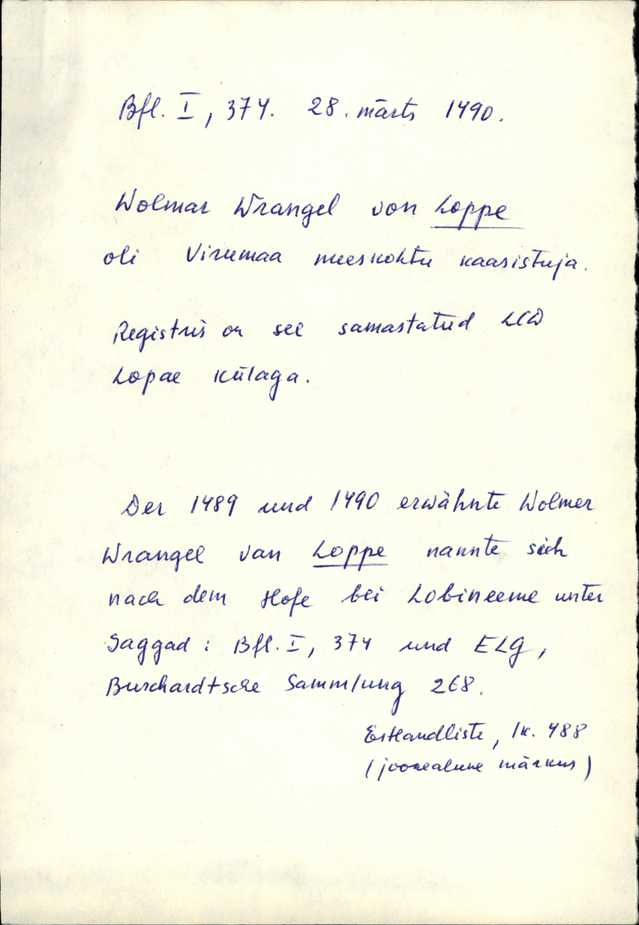 Bfl. I, 374. 28. märts 1490.
Wolmar Wrangel von Loppe
oli Virumaa meeskohtu kaasistuja.
Registris on see samastatud LCD
Lopae külaga.
Der 1489 und 1490 erwähnte Wolmer
Wrangel van Loppe nannte sich
nach dem Hofe bei Lobineeme unter
Saggad: Bfl. I, 374 und ELG,
Burchardtsche Sammlung 268.
EstHandliste, lk. 488
(joonealune märkus)